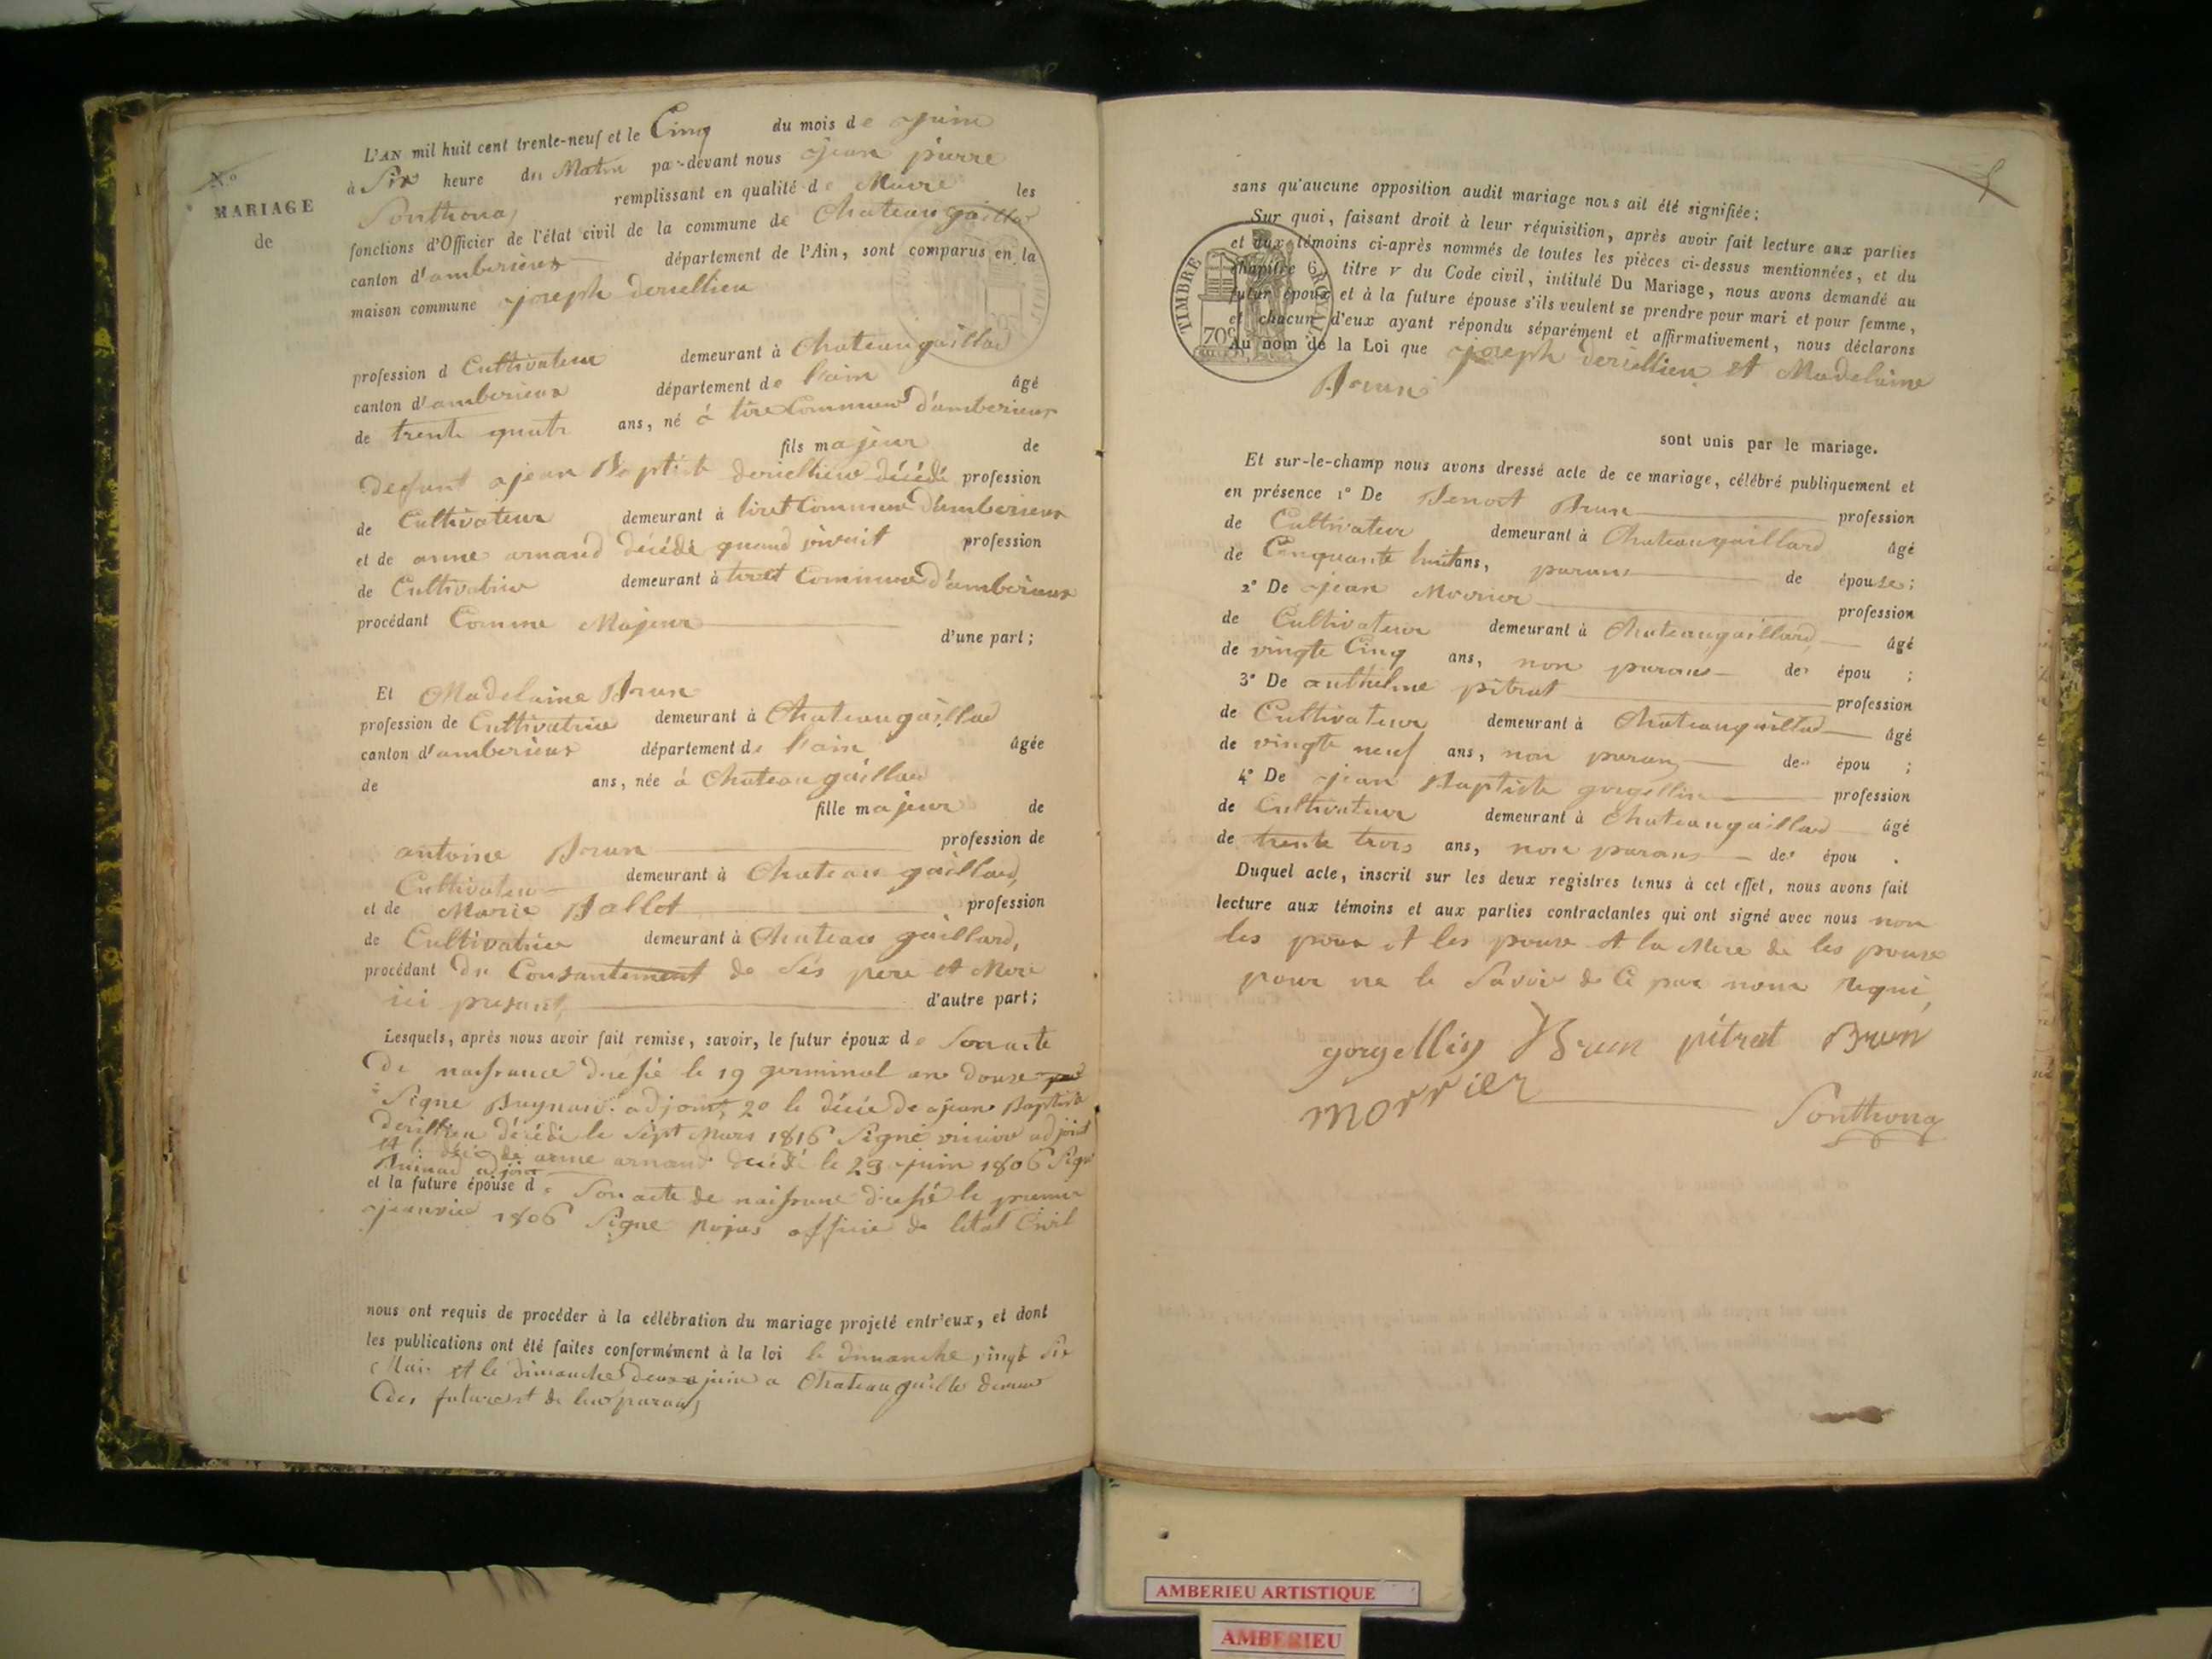 N.o
MARIAGE
de
L'AN mil huit cent trente-neuf et le Cinq du mois de juin
à Six heure du Matin par-devant nous jean pierre
remplissant en qualité de Maire les
fonctions d'Officier de l'état civil de la commune de Chateaugaillard
canton d'amberieux département de l'Ain, sont comparus en la
maison commune joseph
profession d Cultivateur demeurant à Chateaugaillard
canton d'amberieux département de l'ain âgé
de trente quatr ans, né à d'amberieux
fils majeur de
defunt jean Baptiste décédé profession
de Cultivateur demeurant à tiret Commune d'amberieux
et de anne arnaud décédé quand vivait profession
de Cultivatrice demeurant à tiret Commune d'amberieux
procédant Comme Majeur d'une part;
Et Madelaine Brun
profession de Cultivatrice demeurant à Chateaugaillard
canton d'amberieux département de l'ain âgée
de ans, née à Chateaugaillard
fille majeur de
antoine Brun profession de
Cultivateur demeurant à Chateaugaillard,
et de Marie Ballet profession
de Cultivatrice demeurant à Chateau gaillard,
procédant du Consantement de Ses pere et Mere
ici presant, d'autre part;
Lesquels, après nous avoir fait remise, savoir, le futur époux de Son acte
de naissance dressé le 19 germinal an douse
Signe adjoint, 2o le décé de jean Baptiste
décédé le Sept Mars 1816 Signé adjoint
et le décé de anne arnaud décédé le 23 juin 1806 Signé
adjoint
et la future épouse de Son acte de naissance dressé le premier
janvier 1806 Signe officie de letat Civil
nous ont requis de procéder à la célébration du mariage projeté entr'eux, et dont
les publications ont été faites conformément à la loi le dimanche vingt Six
Mai et le dimanche deux juin a
des futures et de leurs parans,
sans qu'aucune opposition audit mariage nous ait été signifiée;
Sur quoi, faisant droit à leur réquisition, après avoir fait lecture aux parties
et aux témoins ci-après nommés de toutes les pièces ci-dessus mentionnées, et du
chapitre 6, titre v du Code civil, intitulé Du Mariage, nous avons demandé au
futur époux et à la future épouse s'ils veulent se prendre pour mari et pour femme,
et chacun d'eux ayant répondu séparément et affirmativement, nous déclarons
Au nom de la Loi que joseph et Madelaine
Brun
sont unis par le mariage.
TIMBRE ROYAL
70c
Et sur-le-champ nous avons dressé acte de ce mariage, célébré publiquement et
en présence 1o De Benoit Brun profession
de Cultivateur demeurant à Chateaugaillard âgé
de Cinquante huit ans, parans de épouse;
2o De jean Morrier profession
de Cultivateur demeurant à Chateaugaillard, âgé
de vingte Cinq ans, non parans des épou ;
3o De anthelme pitrat profession
de Cultivateur demeurant à Chateaugaillard âgé
de vingte neuf ans, non parans des épou ;
4o De jean Baptiste gorgellin profession
de Cultivateur demeurant à Chateaugaillard âgé
de trente trois ans, non parans des épou .
Duquel acte, inscrit sur les deux registres tenus à cet effet, nous avons fait
lecture aux témoins et aux parties contractantes qui ont signé avec nous non
les poux et les pouse et la Mere de les pouse
pour ne le Savoir de Ce par nous requi,
gorgellin Brun pitrat Brun
morrier
AMBERIEU ARTISTIQUE
AMBERIEU